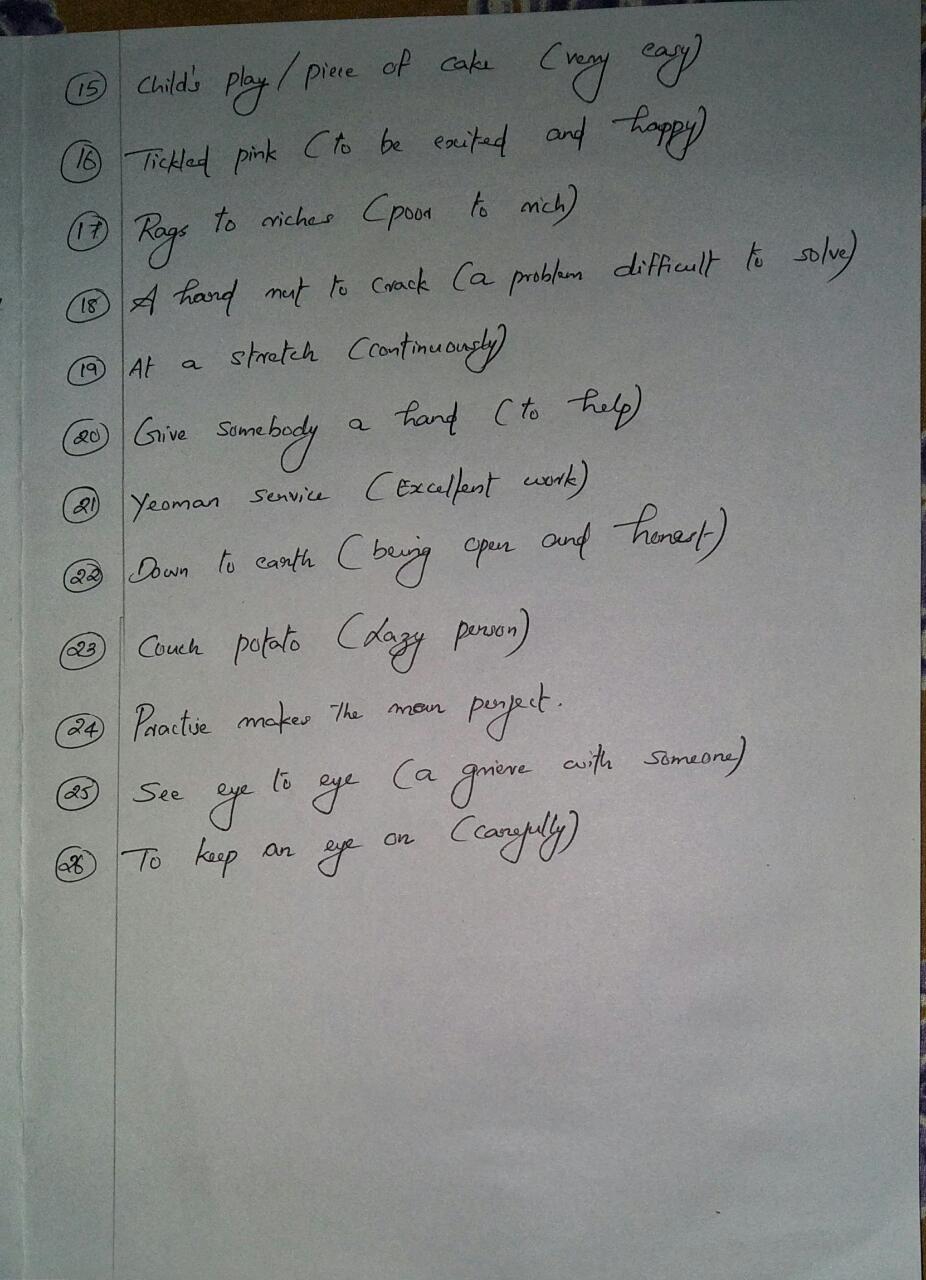 15 Child's play / piece of cake (very easy)
16 Tickled pink (to be exited and happy)
17 Rags to riches (poor to rich)
18 A hard nut to crack (a problem difficult to solve)
19 At a stretch (continuously)
20 Give somebody a hand (to help)
21 Yeoman service (Excellent work)
22 Down to earth (being open and honest)
23 Couch potato (Lazy person)
24 Practise makes the man perfect.
25 See eye to eye (a grieve with someone)
26 To keep an eye on (carefully)